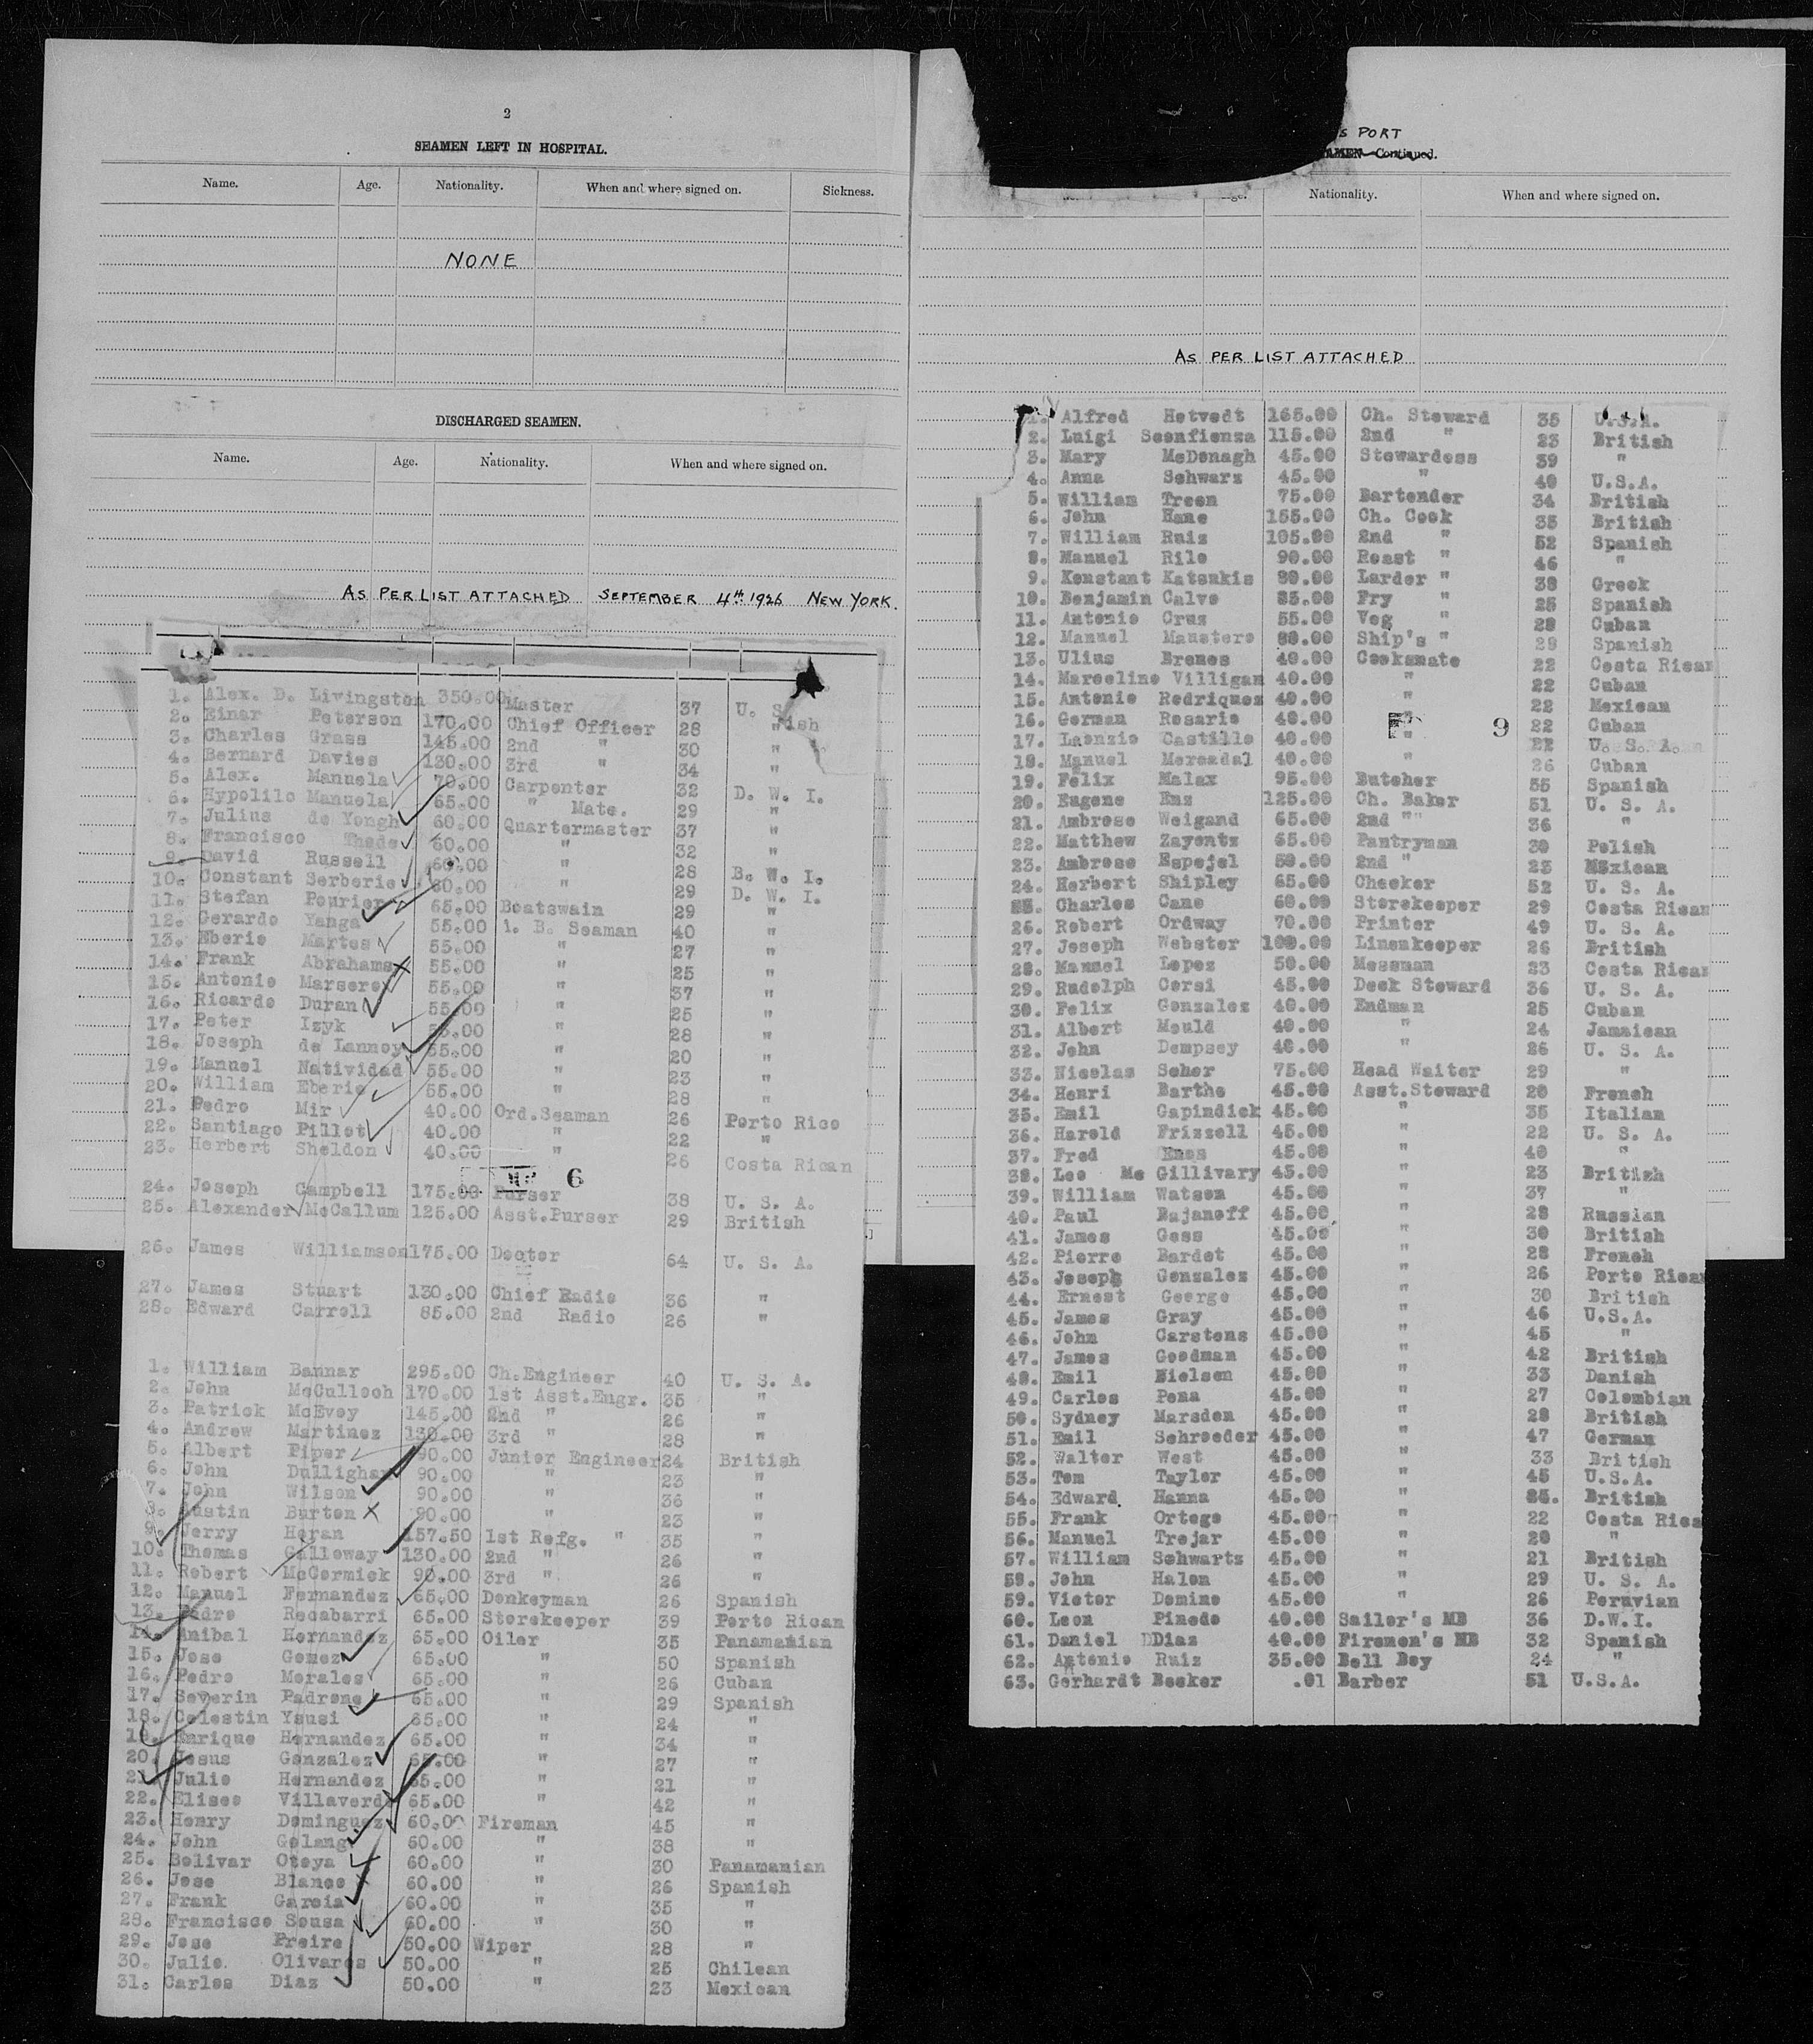 2
SEAMEN LEFT IN HOSPITAL.
Name. Age. Nationality. When and where signed on. Sickness.
NONE
DISCHARGED SEAMEN.
Name. Age. Nationality. When and where signed on.
AS PER LIST ATTACHED SEPTEMBER 4th 1926 NEW YORK.
1. Alex. D. Livingston 350.00 Master 37 U. S.
2. Einar Peterson 170.00 Chief Officer 28 "
3. Charles Grass 145.00 2nd " 30 "
4. Bernard Davies 130.00 3rd " 34 "
5. Alex. Manuela 70.00 Carpenter 32 D. W. I.
6. Hypolilo Manuela 65.00 " Mate. 29 "
7. Julius de Yongh 60.00 Quartermaster 37 "
8. Francisco Thede 60.00 " 32 "
9. David Russell 60.00 " 28 B. W. I.
10. Constant Serberie 60.00 " 29 D. W. I.
11. Stefan Pourier 65.00 Boatswain 29 "
12. Gerardo Yanga 55.00 A. B. Seaman 40 "
13. Eberie Martes 55.00 " 27 "
14. Frank Abrahams 55.00 " 25 "
15. Antonio Marsere 55.00 " 37 "
16. Ricardo Duran 55.00 " 25 "
17. Peter Izyk 55.00 " 28 "
18. Joseph de Lannoy 55.00 " 20 "
19. Manuel Natividad 55.00 " 23 "
20. William Eberie 55.00 " 28 "
21. Pedro Mir 40.00 Ord.Seaman 26 Porto Rico
22. Santiago Pillet 40.00 " 22 "
23. Herbert Sheldon 40.00 " 26 Costa Rican
6
24. Joseph Campbell 175.00 Purser 38 U. S. A.
25. Alexander McCallum 125.00 Asst.Purser 29 British
26. James Williamson 175.00 Doctor 64 U. S. A.
27. James Stuart 130.00 Chief Radio 36 "
28. Edward Carroll 85.00 2nd Radio 26 "
1. William Bannar 295.00 Ch.Engineer 40 U. S. A.
2. John McCulloch 170.00 1st Asst.Engr. 35 "
3. Patrick McEvoy 145.00 2nd " 26 "
4. Andrew Martinez 130.00 3rd " 28 "
5. Albert Piper 90.00 Junior Engineer 24 British
6. John Dullighan 90.00 " 23 "
7. John Wilson 90.00 " 36 "
8. Austin Burton 90.00 " 23 "
9. Jerry Horan 157.50 1st Refg. " 35 "
10. Thomas Galloway 130.00 2nd " 26 "
11. Robert McCormick 90.00 3rd " 26 "
12. Manuel Fernandez 65.00 Donkeyman 26 Spanish
13. Pedro Recabarri 65.00 Storekeeper 39 Porto Rican
14. Anibal Hernandez 65.00 Oiler 35 Panamanian
15. Jose Gomez 65.00 " 50 Spanish
16. Pedro Morales 65.00 " 26 Cuban
17. Severin Padrone 65.00 " 29 Spanish
18. Celestin Ysusi 65.00 " 24 "
19. Enrique Hernandez 65.00 " 34 "
20. Jesus Gonzalez 65.00 " 27 "
21. Julio Hernandez 65.00 " 21 "
22. Eliseo Villaverde 65.00 " 42 "
23. Henry Dominguez 60.00 Fireman 45 "
24. John Golang 60.00 " 38 "
25. Bolivar Oteya 60.00 " 30 Panamanian
26. Jose Blanco 60.00 " 26 Spanish
27. Frank Garcia 60.00 " 35 "
28. Francisco Sousa 60.00 " 30 "
29. Jose Freire 50.00 Wiper 28 "
30. Julio. Olivares 50.00 " 25 Chilean
31. Carlos Diaz 50.00 " 23 Mexican
S PORT
Continued.
Nationality. When and where signed on.
AS PER LIST ATTACHED
1. Alfred Hetvedt 165.00 Ch. Steward 35 U.S.A.
2. Luigi Sconfienza 115.00 2nd " 23 British
3. Mary McDonagh 45.00 Stewardess 39 "
4. Anna Schwarz 45.00 " 40 U.S.A.
5. William Treen 75.00 Bartender 34 British
6. John Hane 155.00 Ch. Cook 35 British
7. William Ruiz 105.00 2nd " 52 Spanish
8. Manuel Rilo 90.00 Roast " 46 "
9. Konstant Katsukis 80.00 Larder " 38 Greek
10. Benjamin Calvo 85.00 Fry " 25 Spanish
11. Antonio Cruz 55.00 Veg " 28 Cuban
12. Manuel Mausters 80.00 Ship's " 29 Spanish
13. Ulius Brenes 40.00 Cooksmate 22 Costa Rican
14. Marceline Villigan 40.00 " 22 Cuban
15. Antonio Redriques 40.00 " 22 Mexican
16. German Rosario 40.00 " 22 Cuban
9
17. Laonzio Castillo 40.00 " 22 U. S. A.
18. Manuel Mercadal 40.00 " 26 Cuban
19. Felix Malax 95.00 Butcher 55 Spanish
20. Eugene Enz 125.00 Ch. Baker 51 U. S. A.
21. Ambrose Weigand 65.00 2nd "" 36 "
22. Matthew Zayentz 65.00 Pantryman 30 Polish
23. Ambrose Espejel 50.00 2nd " 23 Mexican
24. Herbert Shipley 65.00 Checker 52 U. S. A.
25. Charles Cane 60.00 Storekeeper 29 Costa Rican
26. Robert Ordway 70.00 Printer 49 U. S. A.
27. Joseph Webster 100.00 Linenkeeper 26 British
28. Manuel Lopez 50.00 Messman 23 Costa Rican
29. Rudolph Corsi 45.00 Deck Steward 36 U. S. A.
30. Felix Gonzalez 40.00 Endman 25 Cuban
31. Albert Mould 40.00 " 24 Jamaican
32. John Dempsey 40.00 " 26 U. S. A.
33. Nicolas Scher 75.00 Head Waiter 29 "
34. Henri Barthe 45.00 Asst.Steward 20 French
35. Emil Gapindick 45.00 " 35 Italian
36. Harold Frizzell 45.00 " 22 U. S. A.
37. Fred Enos 45.00 " 40 "
38. Leo Mc Gillivary 45.00 " 23 British
39. William Watson 45.00 " 37 "
40. Paul Bajanoff 45.00 " 28 Russian
41. James Goss 45.00 " 30 British
42. Pierre Bardet 45.00 " 28 French
43. Joseph Gonzalez 45.00 " 26 Porto Rican
44. Ernest George 45.00 " 30 British
45. James Gray 45.00 " 46 U.S.A.
46. John Carstens 45.00 " 45 "
47. James Goodman 45.00 " 42 British
48. Emil Nielsen 45.00 " 33 Danish
49. Carlos Pena 45.00 " 27 Colombian
50. Sydney Marsden 45.00 " 28 British
51. Emil Schroeder 45.00 " 47 German
52. Walter West 45.00 " 33 British
53. Tom Tayler 45.00 " 45 U.S.A.
54. Edward Hanna 45.00 " British
55. Frank Ortega 45.00 " 22 Costa Rica
56. Manuel Trejar 45.00 " 20 "
57. William Schwartz 45.00 " 21 British
58. John Halon 45.00 " 29 U. S. A.
59. Victor Domino 45.00 " 26 Peruvian
60. Leon Pinedo 40.00 Sailor's MB 36 D.W.I.
61. Daniel DDiaz 40.00 Firemen's MB 32 Spanish
62. Antonio Ruiz 35.00 Bell Boy 24 "
63. Gerhardt Becker .01 Barber 51 U.S.A.